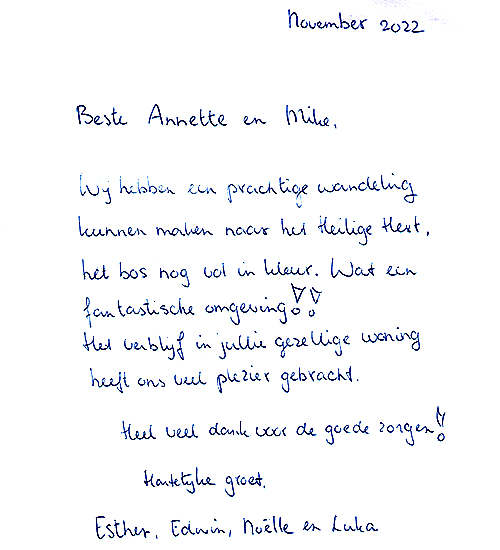 November 2022
Beste Annette en Mike,
Wij hebben een prachtige wandeling
kunnen maken naar het Heilige Hert,
het bos nog vol in kleur. Wat een
fantastische omgeving!!
Het verblijf in jullie gezellige woning
heeft ons veel plezier gebracht.
Heel veel dank voor de goede zorgen!
Hartelijke groet,
Esther, Edwin, Noëlle en Luka